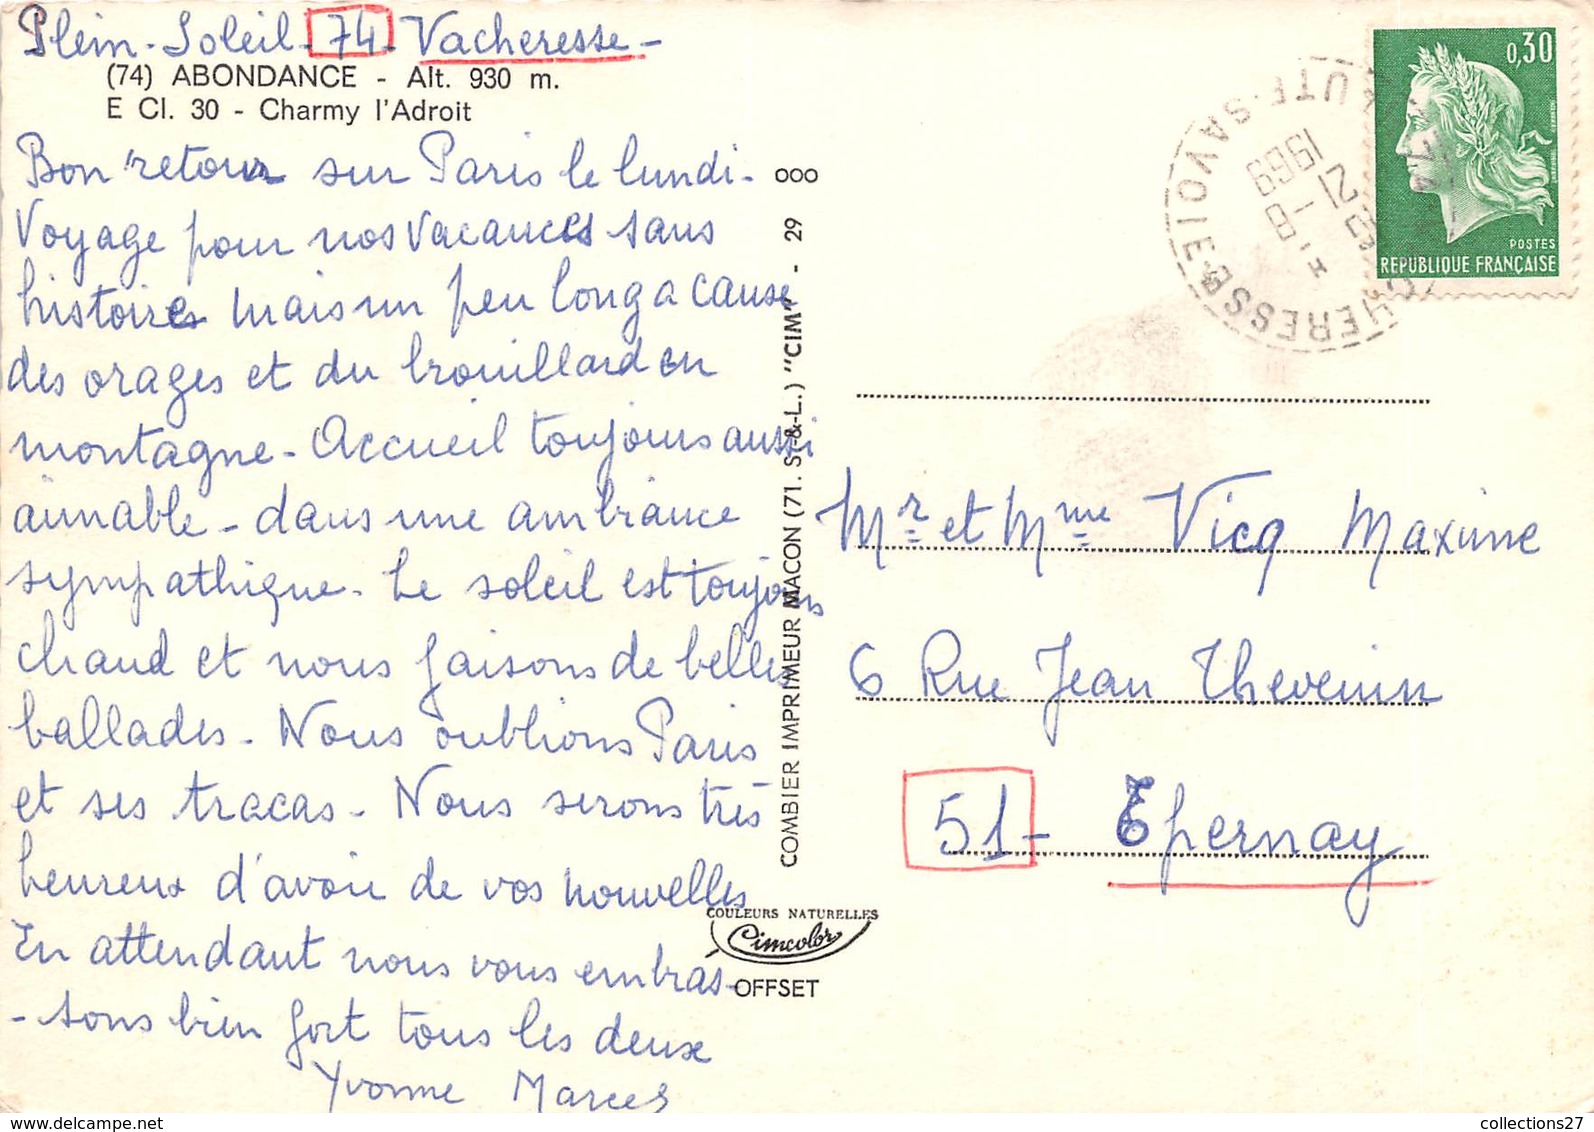 Plein-Soleil-74-Vacheresse-
(74) ABONDANCE - Alt. 930 m.
E Cl. 30 - Charmy l'Adroit
Bon retour sur Paris le lundi-
Voyage pour nos vacances sans
histoires mais un peu long a cause
des orages et du brouillard en
montagne - Accueil toujours aussi
aimable - dans une ambiance
sympathique - Le soleil est toujours
chaud et nous faisons de belles
ballades - Nous oublions Paris
et ses tracas - Nous serons très
heureux d'avoir de vos nouvelles
En attendant nous vous embras-
-sons bien fort tous les deux
Yvonne Marcel
COMBIER IMPRIMEUR MACON (71. S.-&-L.) "CIM" - 29 000
COULEURS NATURELLES
Cimcolor
OFFSET
0,30
POSTES
REPUBLIQUE FRANÇAISE
SAVOIE
21 -8
1969
Mr et Mme Vicq Maxime
6 Rue Jean Thevenin
51- Epernay
collections27